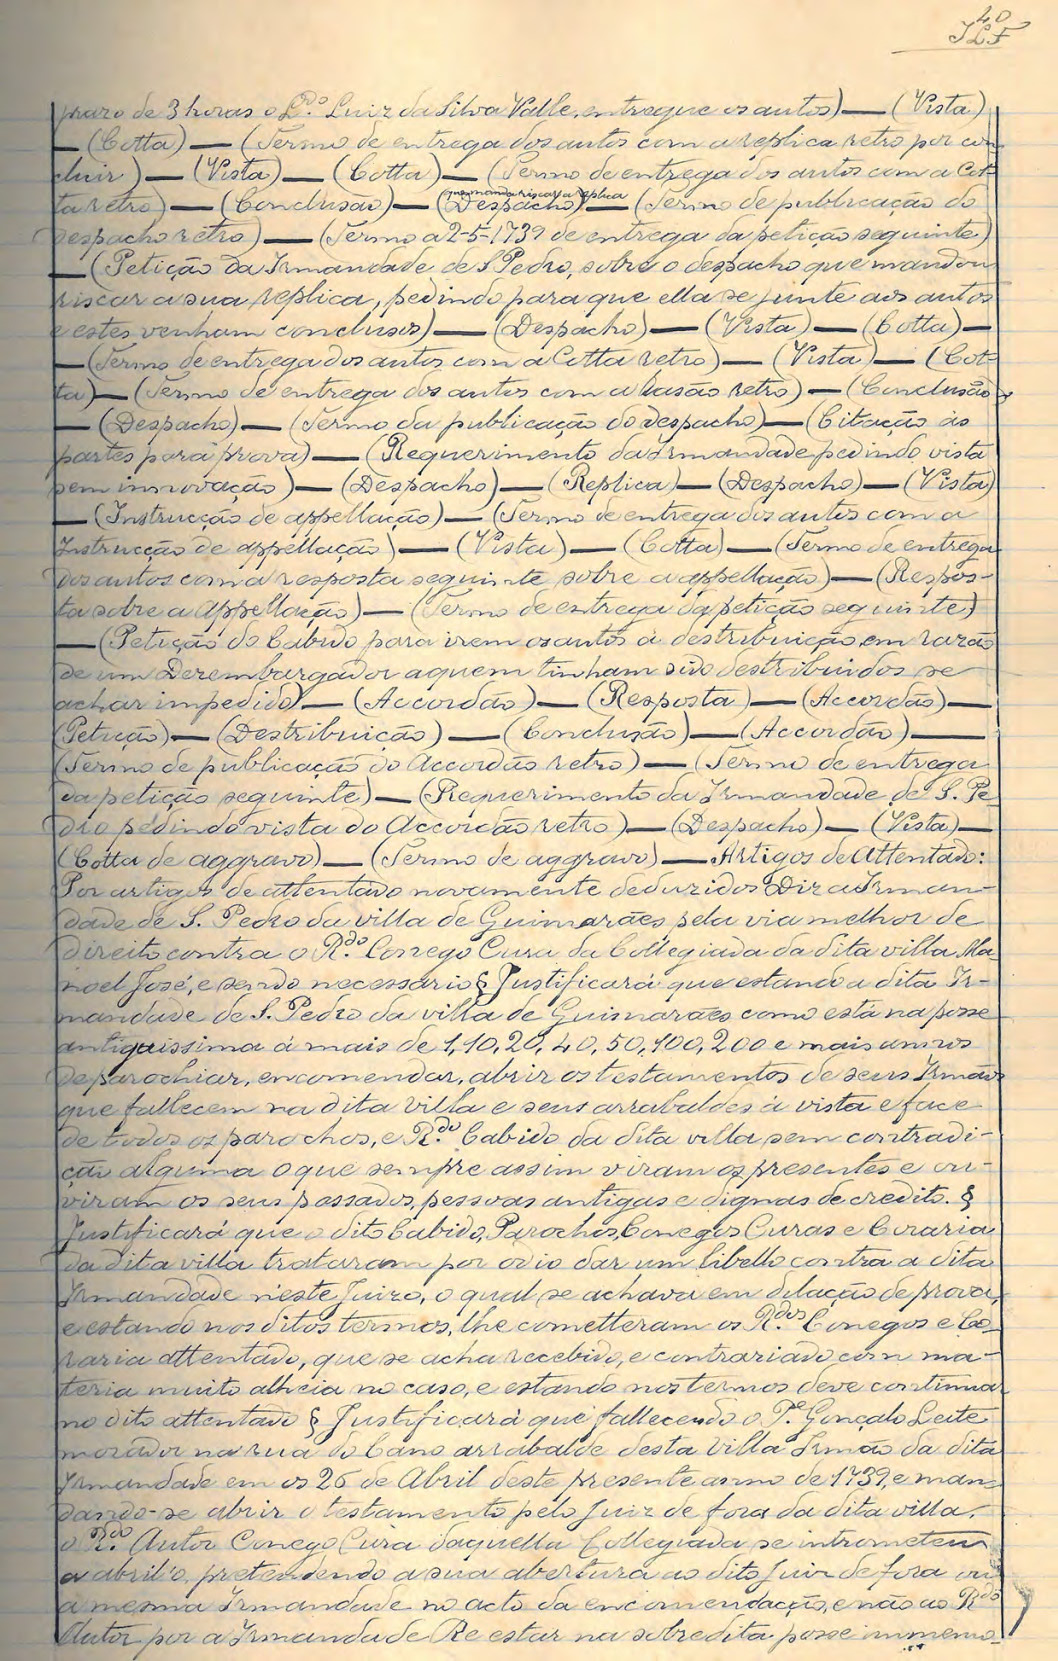 40
JLF
prazo de 3 horas o L.do Luiz da Silva Valle, entregue os autos) — (Vista)
— (Cotta) — (Termo de entrega dos autos com a replica retro por con
cluir) — (Vista) — (Cotta) — (Termo de entrega dos autos com a Cot-
ta retro) — (Conclusão) — (Despacho que manda riscar a replica) — (Termo de publicação do
despacho retro) — (Termo a 2-5-1739 de entrega da petição seguinte)
— (Petição da Irmandade de S. Pedro, sobre o despacho que mandou
riscar a sua replica, pedindo para que ella se junte aos autos
e estes venham conclusos) — (Despacho) — (Vista) — (Cotta) —
— (Termo de entrega dos autos com a Cotta retro) — (Vista) — (Cot-
ta) — (Termo de entrega dos autos com a rasão retro) — (Conclusão)
— (Despacho) — (Termo da publicação do despacho) — (Citação ás
partes para prova) — (Requerimento da Irmandade pedindo vista
sem innovação) — (Despacho) — (Replica) — (Despacho) — (Vista)
— (Instrucção de appellação) — (Termo de entrega dos autos com a
Instrucção de appellação) — (Vista) — (Cotta) — (Termo de entrega
dos autos com a resposta seguinte sobre a appellação) — (Respos-
ta sobre a Appellação) — (Termo de entrega da petição seguinte)
— (Petição do Cabido para irem os autos á destribuição em razão
de um Dezembargador a quem tinham sido destribuidos se
achar impedido) — (Accordão) — (Resposta) — (Accordão) —
(Petição) — (Destribuição) — (Conclusão) — (Accordão) —
(Termo de publicação do Accordão retro) — (Termo de entrega
da petição seguinte) — (Requerimento da Irmandade de S. Pe
dro pedindo vista do Accordão retro) — (Despacho) — (Vista) —
(Cotta de aggravo) — (Termo de aggravo) — Artigos de Attentado:
Por artigos de attentado novamente deduzidos Diz a Irman-
dade de S. Pedro da villa de Guimarães pela via melhor de
direito contra o R.do Conego Cura da Collegiada da dita villa Ma
noel José, e sendo necessario § Justificará que estando a dita Ir-
mandade de S. Pedro da villa de Guimarães como está na posse
antiquissima á mais de 1, 10, 20, 40, 50, 100, 200 e mais annos
de parochiar, encomendar, abrir os testamentos de seus Irmãos
que fallecem na dita villa e seus arrabaldes á vista e face
de todos os parochos, e R.do Cabido da dita villa sem contradi-
ção alguma o que sempre assim viram os presentes e ou-
viram os seus passados, pessoas antigas e dignas de credito. §
Justificará que o dito Cabido, Parochos, Conegos Curas e Coraria
da dita villa trataram por odio dar um libello contra a dita
Irmandade n'este Juizo, o qual se achava em dilação de prova,
e estando nos ditos termos, lhe cometteram os R.dos Conegos e Co-
raria attentado, que se acha recebido, e contrariado com ma-
teria muito alheia no caso, e estando nos termos deve continuar
no dito attentado § Justificará que fallecendo o P.e Gonçalo Leite
morador na rua do Cano arrabalde desta Villa Irmão da dita
Irmandade em os 26 de Abril deste presente anno de 1739, e man-
dando-se abrir o testamento pelo Juiz de fora da dita villa,
o R.do Autor Conego Cura daquella Collegiada se intrometeu
a abril'o, pretendendo a sua abertura ao dito Juiz de fora ou
a mesma Irmandade no acto da encomendacção, e não ao R.do
Autor por a Irmandade Re estar na sobredita posse immemo-